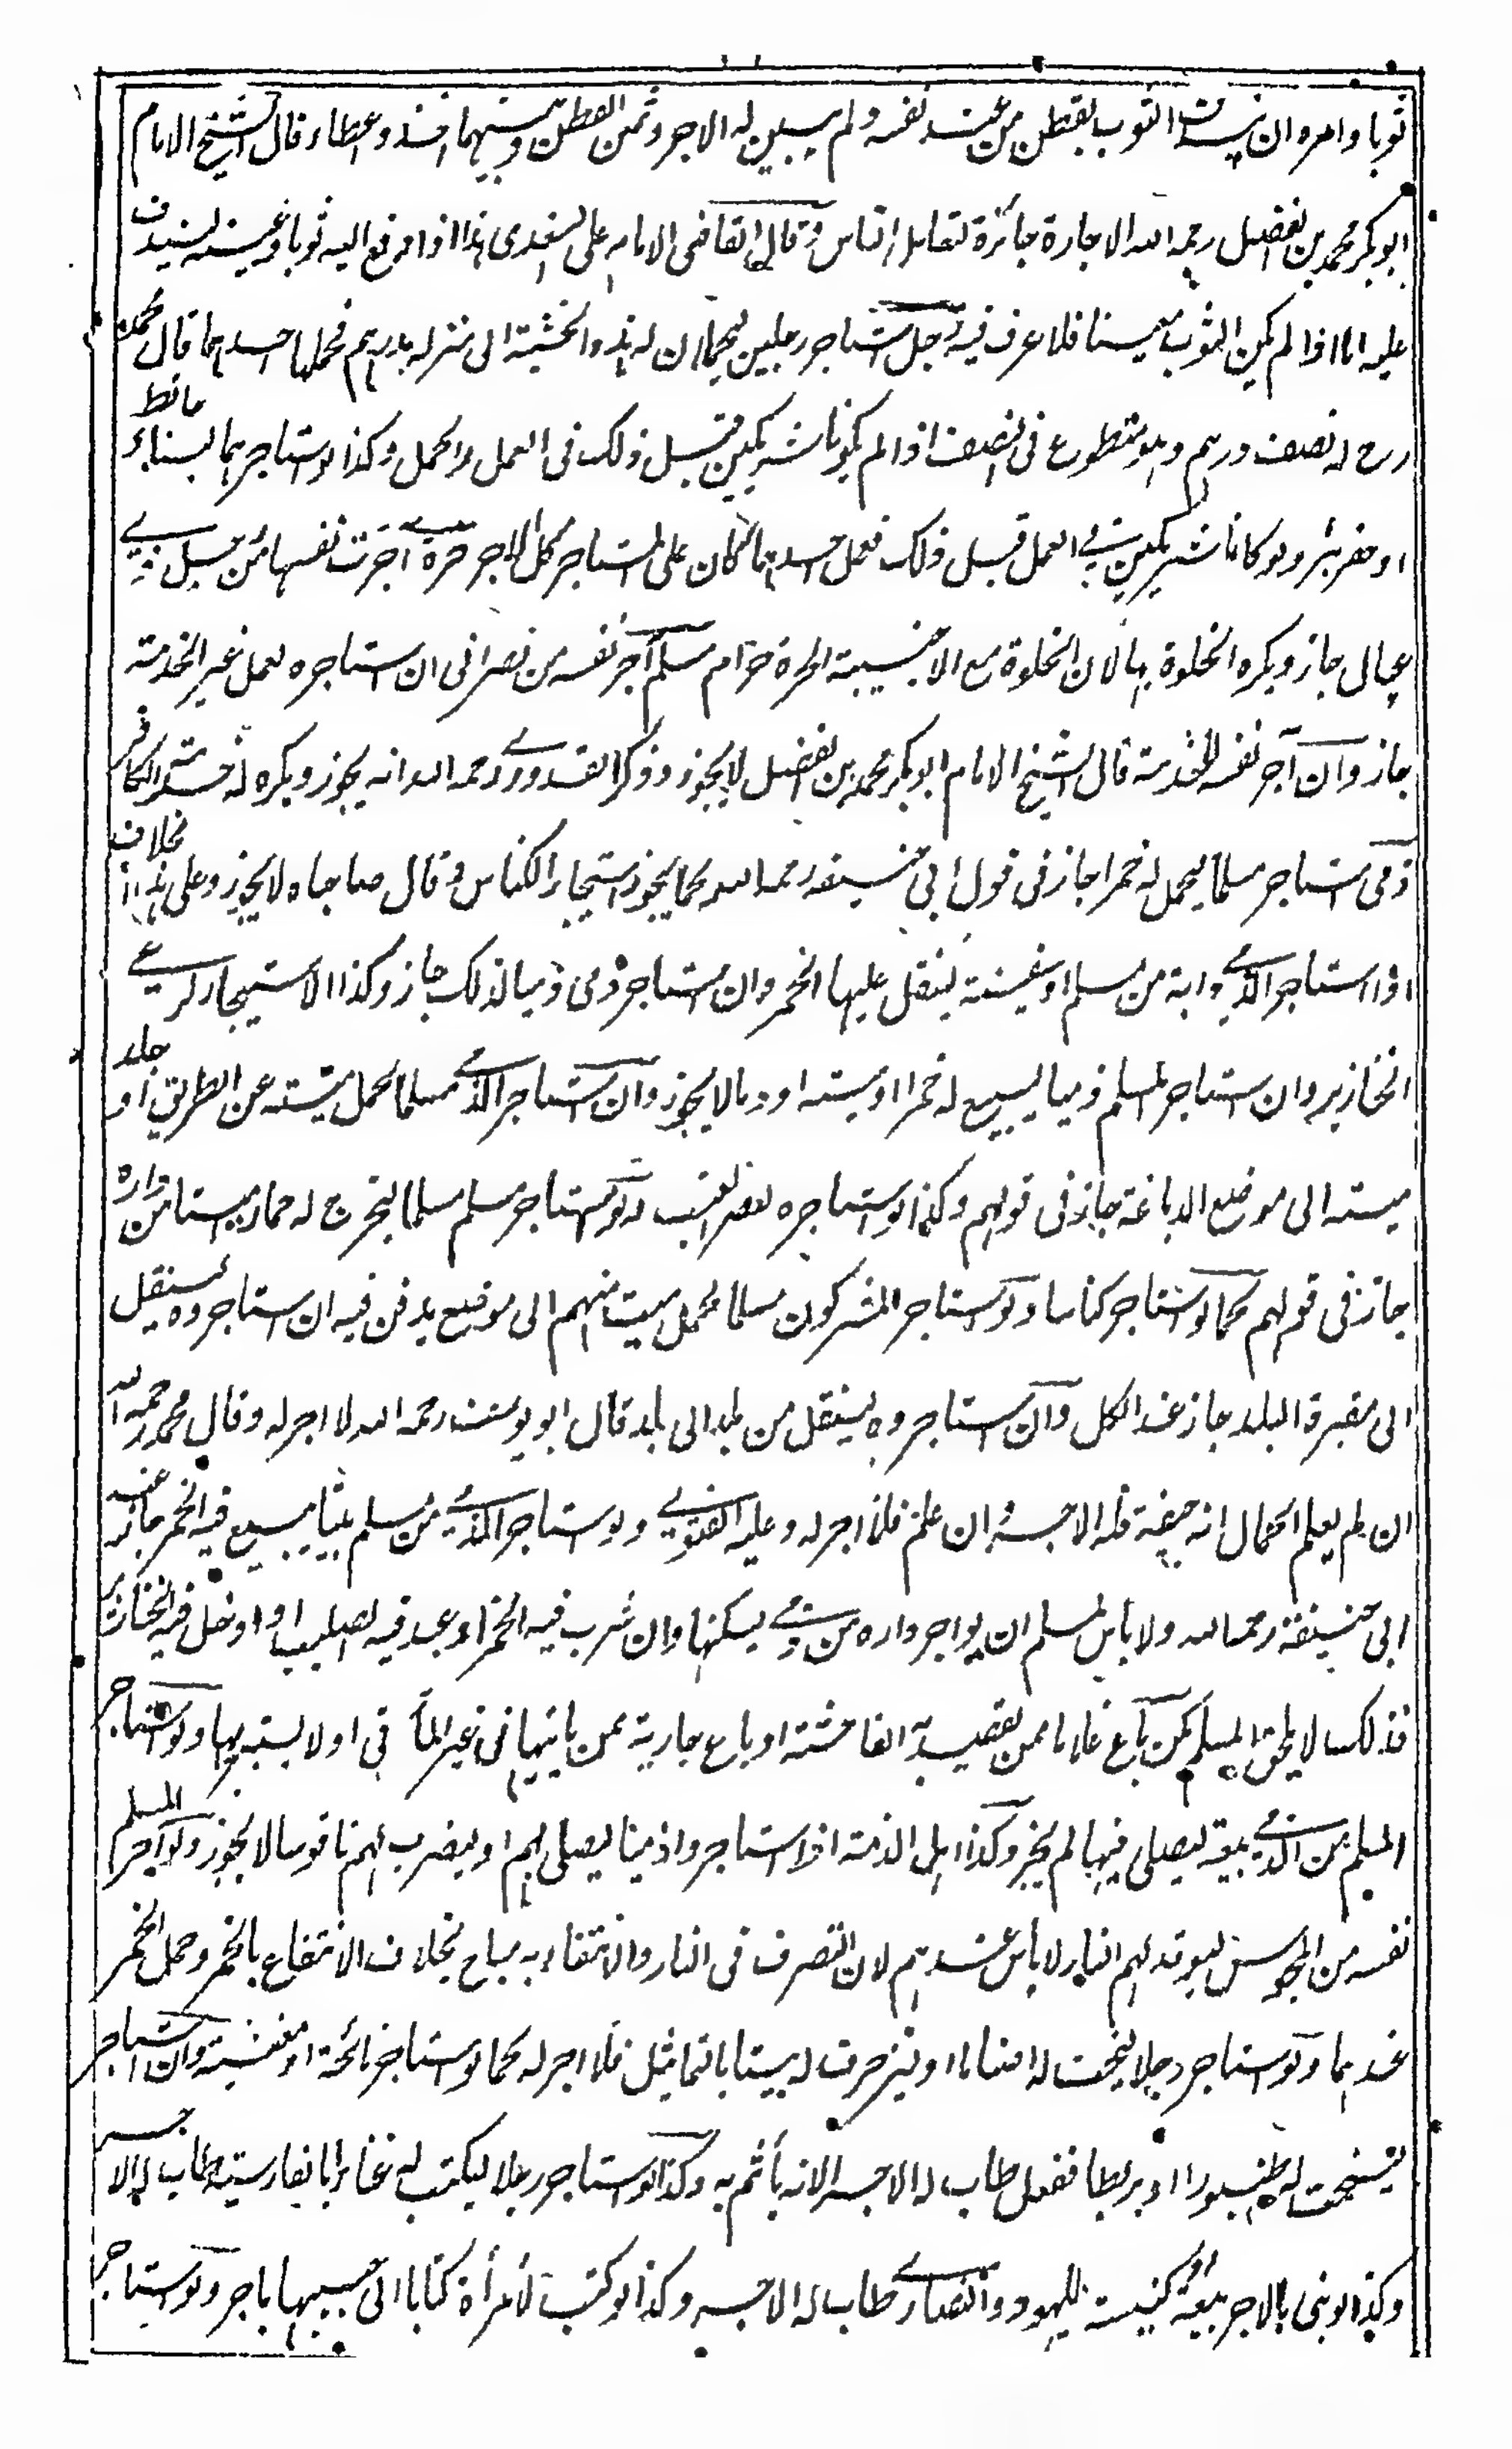 ثوبا وامره ان يندف الثوب بقطن من عند نفسه ولم يبين له الاجر وثمن القطن وبينهما اخذ وعطاء قال الشيخ الامام
ابو بكر محمد بن الفضل رحمه الله الاجارة جائزة لتعامل الناس وقال القاضى الامام على السغدى هذا اذا دفع اليه ثوبا وعينه ليندف
عليه اما اذا لم يكن الثوب معينا فلا عرف فيه رجل استاجر رجلين ليحملان له هذه الخشبة الى منزله بدرهم فحملها احدهما قال محمد
رح له نصف درهم وهو متطوع فى النصف اذا لم يكونا شريكين قبل ذلك فى العمل والحمل وكذا لو استاجرهما لبناء حائط
او حفر بئر ولو كانا شريكين فى العمل قبل ذلك فعمل احدهما كان على المستاجر كل الاجر حرة آجرت نفسها من رجل ذى
عيال جاز ويكره الخلوة بها لان الخلوة مع الاجنبية الحرة حرام مسلم آجر نفسه من نصرانى ان استاجره لعمل غير الخدمة
جاز وان آجر نفسه للخدمة قال الشيخ الامام ابو بكر محمد بن الفضل لا يجوز وذكر القدورى رحمه الله انه يجوز ويكره له خدمة الكافر
ذمى استاجر مسلما ليحمل له خمرا جاز فى قول ابى حنيفة رحمه الله كما يجوز استيجار الكناس وقال صاحباه لا يجوز وعلى هذا الخلاف
اذا استاجر الذمى دابة من مسلم او سفينة لينقل عليها الخمر وان استاجر ذمى ذميا لذلك جاز وكذا الاستيجار لرعى
الخنازير وان استاجر المسلم ذميا ليبيع له خمرا او ميتة او دما لا يجوز وان استاجر الذمى مسلما ليحمل ميتة عن الطريق او جلد
ميتة الى موضع الدباغة جاز فى قولهم وكذا لو استاجره لعصر العنب ولو استاجر مسلم مسلما ليخرج له حمارا ميتا من داره
جاز فى قولهم كما لو استاجر كناسا ولو استاجر المشركون مسلما ليحمل ميت منهم الى موضع يدفن فيه ان استاجروه لينقل
الى مقبرة البلد جاز عند الكل وان استاجروه لينقل من بلد الى بلد قال ابو يوسف رحمه الله لا اجر له وقال محمد رحمه الله
ان لم يعلم الحمال انه جيفة فله الاجر وان علم فلا اجر له وعليه الفتوى ولو استاجر الذمى من مسلم بيتا يبيع فيه الخمر جاز عند
ابى حنيفة رحمه الله ولا باس لمسلم ان يواجر داره من ذمى ليسكنها وان شرب فيه الخمر او عبد فيه الصليب او ادخل فيه الخنازير
فذلك لا يلحق المسلم كمن باع غلاما ممن يقصد به الفاحشة او باع جارية ممن ياتيها فى غير المأتى او لا يستبريها ولو استاجر
المسلم من الذمى بيعة ليصلى فيها لم يجز وكذا اهل الذمة اذا استاجروا ذميا ليصلى بهم او ليضرب لهم ناقوسا لا يجوز ولو آجر المسلم
نفسه من المجوس ليوقد لهم النار لا باس عندهم لان التصرف فى النار والانتفاع به مباح بخلاف الانتفاع بالخمر وحمل الخمر
عندهما ولو استاجر رجلا لينحت له اصناما او ليزخرف له بيتا بالتماثيل فلا اجر له كما لو استاجر نائحة او مغنية وان استاجر
لينحت له طنبورا او بربطا ففعل طاب له الاجر الا انه يأثم به وكذا لو استاجر رجلا ليكتب له غناء بالفارسية طاب له الاجر
وكذا لو بنى بالاجر بيعة او كنيسة لليهود والنصارى طاب له الاجر وكذا لو كتب لامرأة كتابا الى حبيبها باجر ولو استاجر